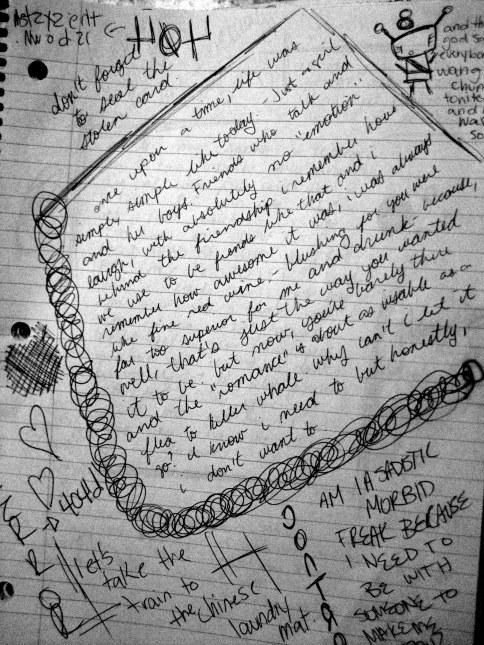 HOH
don't forget
to seal the
stolen card.
8
and th
god so
everybo
wang
chun
tonite
and i
was
so
once upon a time, life was
simply simple like today. Just a girl
and her boys. Friends who talk and
laugh, with absolutely no "emotion"
behind the friendship i remember how
we use to be friends like that and i
remember how awesome it was, i was always
like fine red wine,- blushing for you were
far too superior for me and drunk- because,
well, that's just the way you wanted
it to be. but now, you're barely there
and the "romance" is about as visable as a
flea to killer whale why can't i let it
go? i know i need to but honestly,
i don't want to
let's
take the
train to
the chinese
laundry
mat.
AM I A SADISTIC
MORBID
FREAK BECAUSE
I NEED TO
BE WITH
SOMEONE TO
MAKE ME